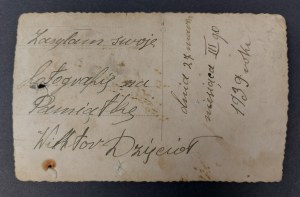 swoje
fotografię na
Pamiątkę
Wiktor Dzięcioł
dnia 27
miesiąca III go
1939 roku